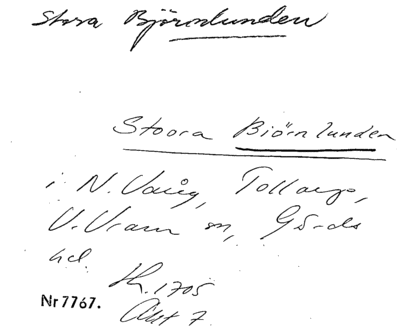 Stora Björnlunden
Stoora Biörnlunden
i N. Vång, Tollarps,
V. Vram sn, Gärds
hd.
Th. 1705
Akt 7
Nr 7767.